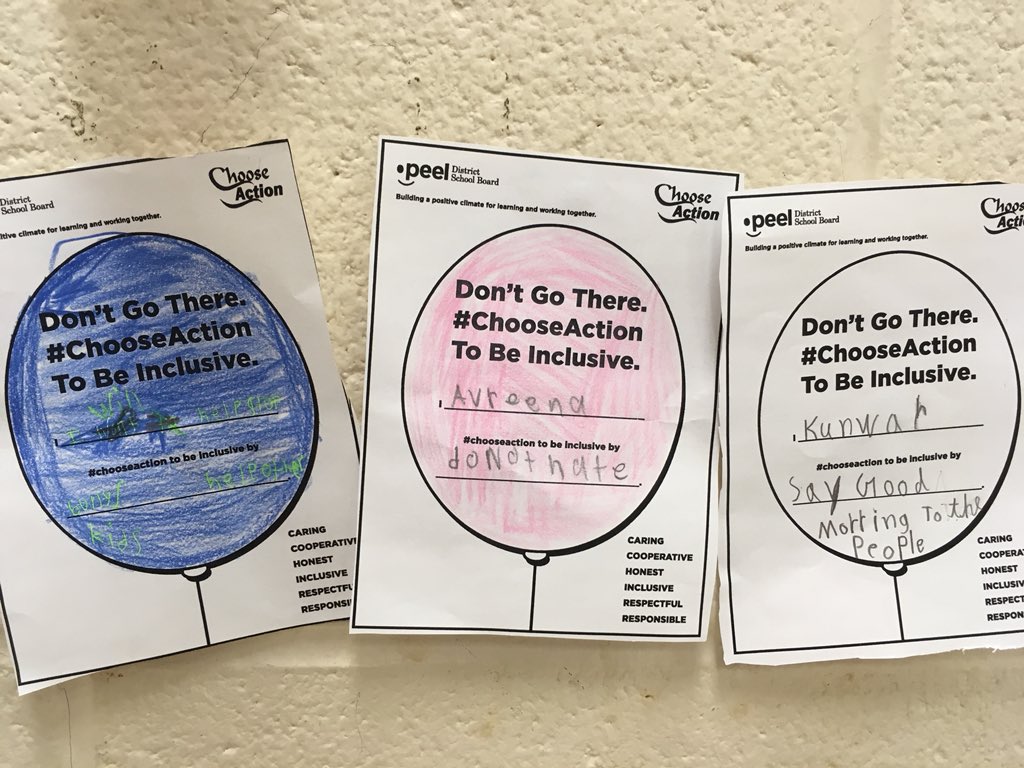 District
School Board
Choose
Action
itive climate for learning and working together.
Don't Go There.
#ChooseAction
To Be Inclusive.
I
#chooseaction to be inclusive by
kids
CARING
COOPERATIVE
HONEST
INCLUSIVE
RESPECTFU
RESPONSI
peel District
School Board
Choose
Action
Building a positive climate for learning and working together.
Don't Go There.
#ChooseAction
To Be Inclusive.
I Avreena
#chooseaction to be inclusive by
doNot hate
CARING
COOPERATIVE
HONEST
INCLUSIVE
RESPECTFUL
RESPONSIBLE
peel District
School Board
Choos
Acti
Building a positive climate for learning and working together.
Don't Go There.
#ChooseAction
To Be Inclusive.
I Kunwar
#chooseaction to be inclusive by
Say Good
Morting To the
People
CARING
COOPERA
HONEST
INCLUSIV
RESPECT
RESPON